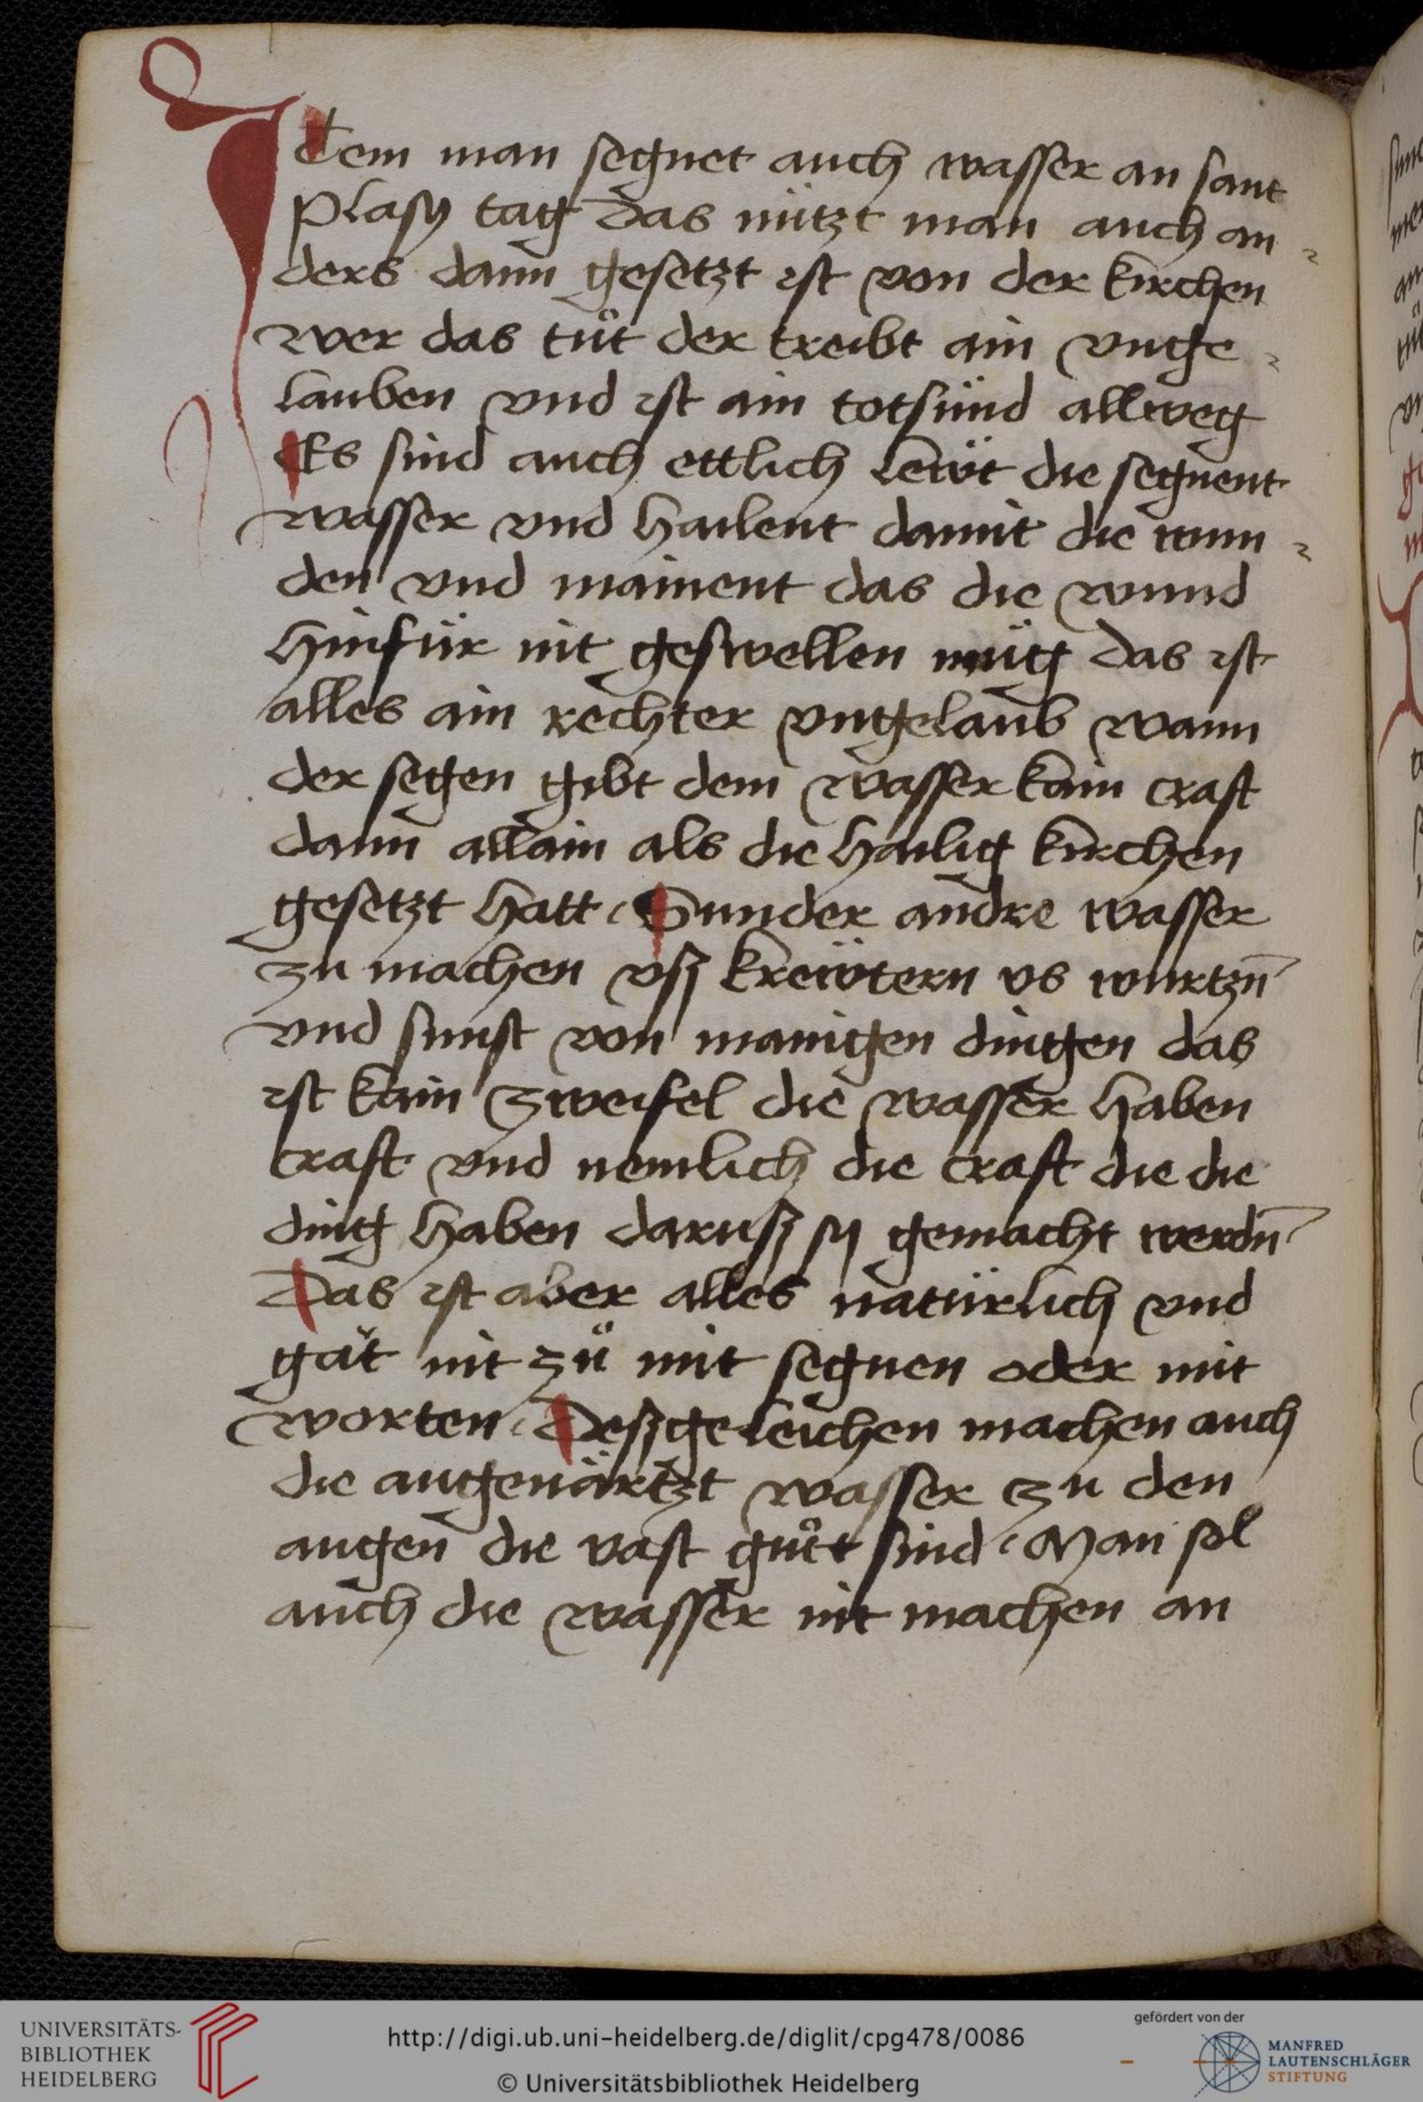 Item man segnet auch wasser an sant
Plasy tag das nützt man auch an
ders dann gesetzt ist von der kirchen
wer das tuͦt der treibt ain vnge
lauben vnd ist ain totsünd allweg
Es sind auch ettlich lewt die segnent
wasser vnd hailent damit die wun
den vnd mainent das die wund
hinfür nit geswellen müg das ist
alles ain rechter vngelaub wann
der segen gibt dem wasser kain craft
dann allain als die hailig kirchen
gesetzt hatt Sunder andre wasser
zu machen vsz krewtern vs wurtzn̄
vnd sunst von manigen dingen das
ist kain zweifel die wasser haben
craft vnd nemlich die craft die die
ding haben darusz sy gemacht werdn̄
Das ist aber alles natürlich vnd
găt nit zuͦ mit segnen oder mit
worten Deszgeleichen machen auch
die augenärtzt wasser zu den
augen die vast guͦt sind Man sol
auch die wasser nit machen an
UNIVERSITÄTS-
BIBLIOTHEK
HEIDELBERG
http://digi.ub.uni-heidelberg.de/diglit/cpg478/0086
© Universitätsbibliothek Heidelberg
gefördert von der
MANFRED
LAUTENSCHLÄGER
STIFTUNG